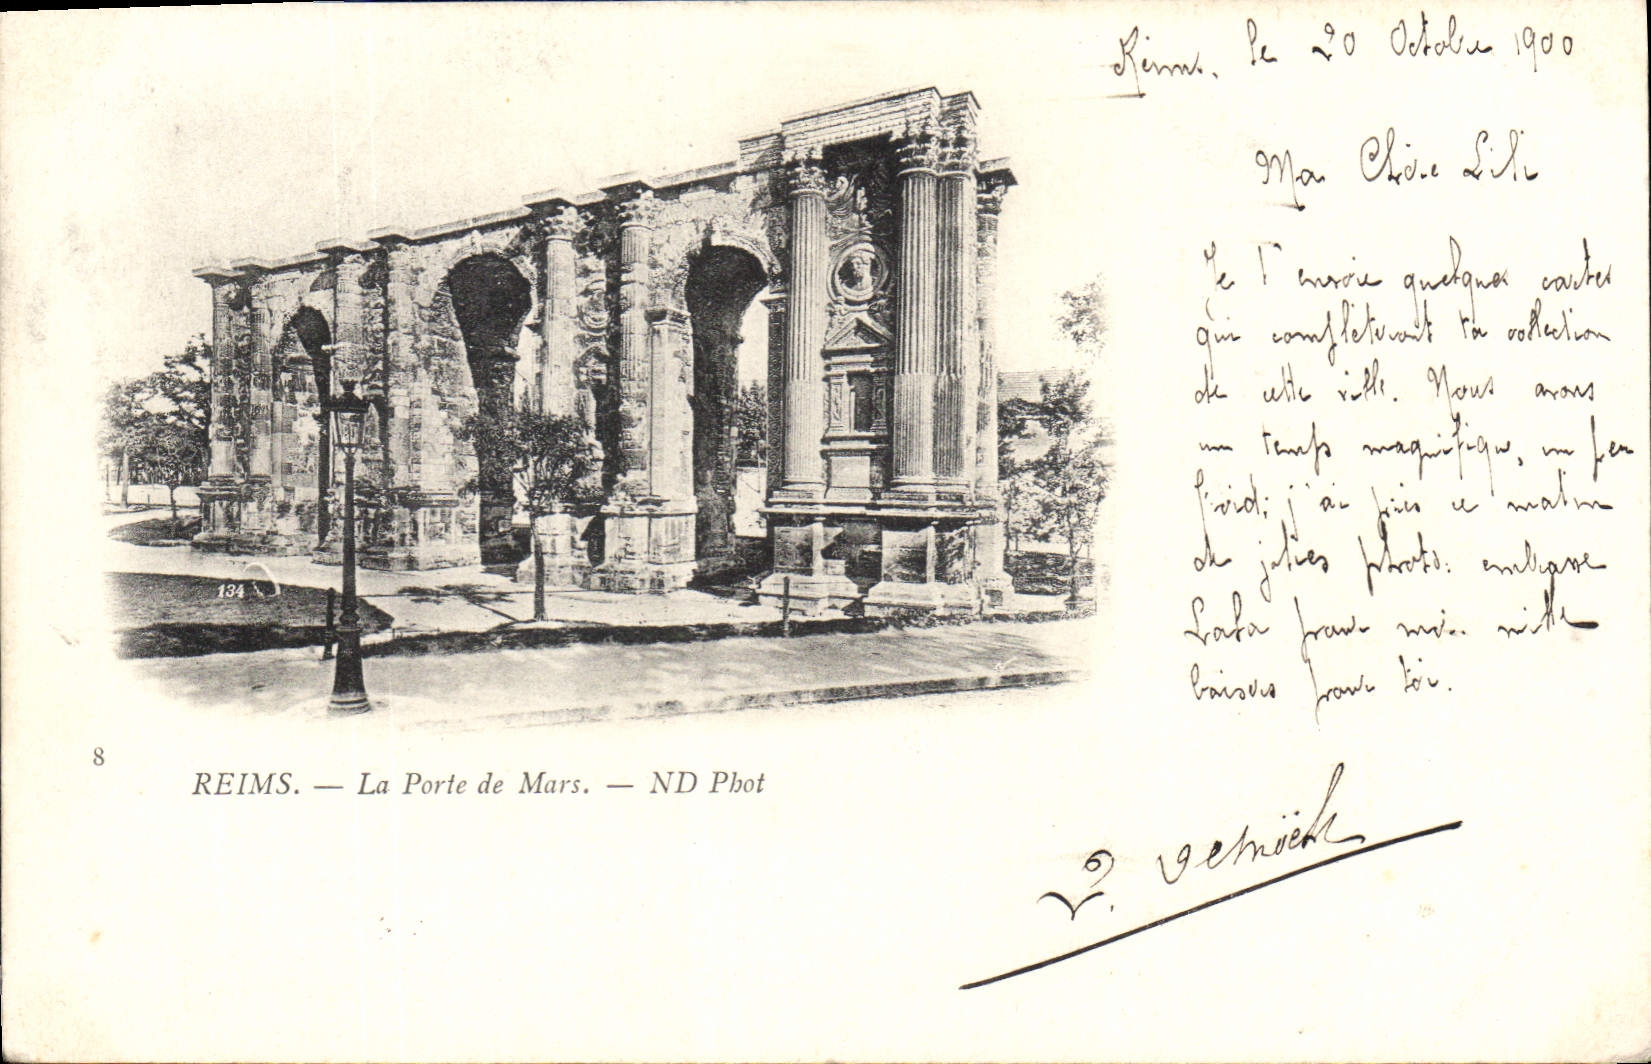 Reims, le 20 Octobre 1900
Ma Chère Lili
Je t'envoie quelques cartes
qui complèteront ta collection
de cette ville. Nous avons
un temps magnifique, un peu
froid; j'ai pris ce matin
de jolies photos. embrasse
Lala pour moi. mille
baisers pour toi.
134
8
REIMS. — La Porte de Mars. — ND Phot